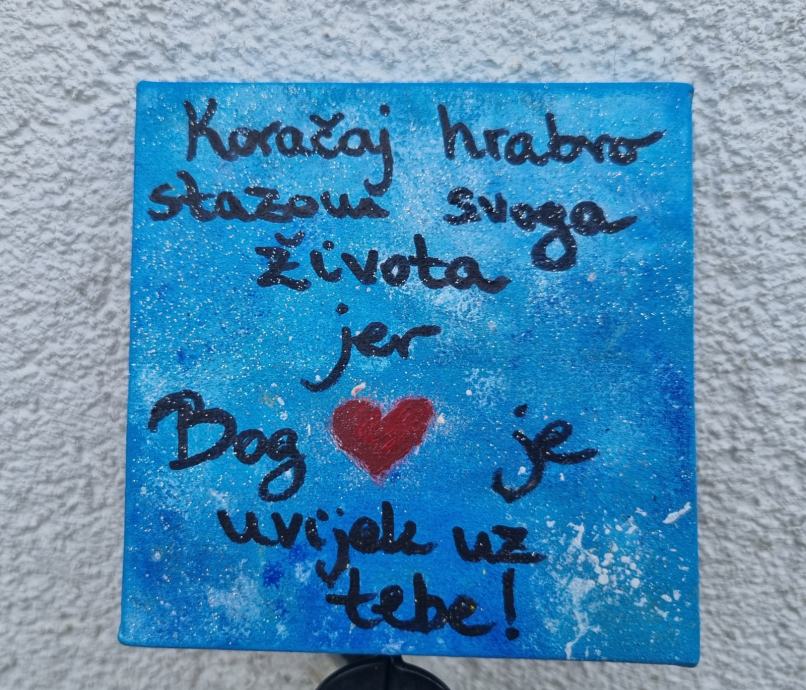 Koračaj hrabro
stazom svoga
života
jer
Bog je
uvijek uz
tebe!